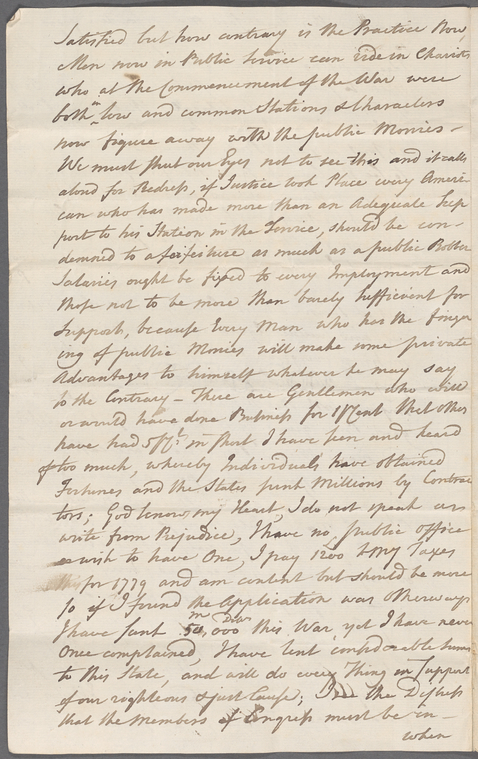 Satisfied but how contrary is the Practice Now,
Men now in Public Service can ride in Chariots
who at the Commencement of the War were
both in low and common Stations & Characters
now figure away with the public Monies –
We must shut our Eyes not to see this and it calls
aloud for Redress, if Justice took Place every Ameri-
can who has made more than an Adequate Sup
port to his Station in the Service, should be con-
demned to a forfeiture as much as a public Robber
Salaries ought be fixed to every Employment and
those not to be more than barely sufficient for
Support, because Every Man who has the finger
ing of public Monies will make some private
Advantages to himself whatever he may say
to the Contrary – There are Gentlemen who will
or would have done Business for 1 P Cent that others
have had 5 P Ct. in short I have seen and heard
of too much, whereby Individuals have obtained
Fortunes and the States sunk Millions by Contrac
tors; God knows my Heart, I do not speak or
write from Prejudice, I have no public office
wish to have One, I pay 1200 My Taxes
for 1779 and am content but should be more
so if I found the Application was otherways
I have sunk 50,000 this War, yet I have never
Once complained, I have lent considerable sums
to this State, and will do every Thing in Support
of our righteous & just Cause; I the Distress
that the Members of Congress must be in –
when